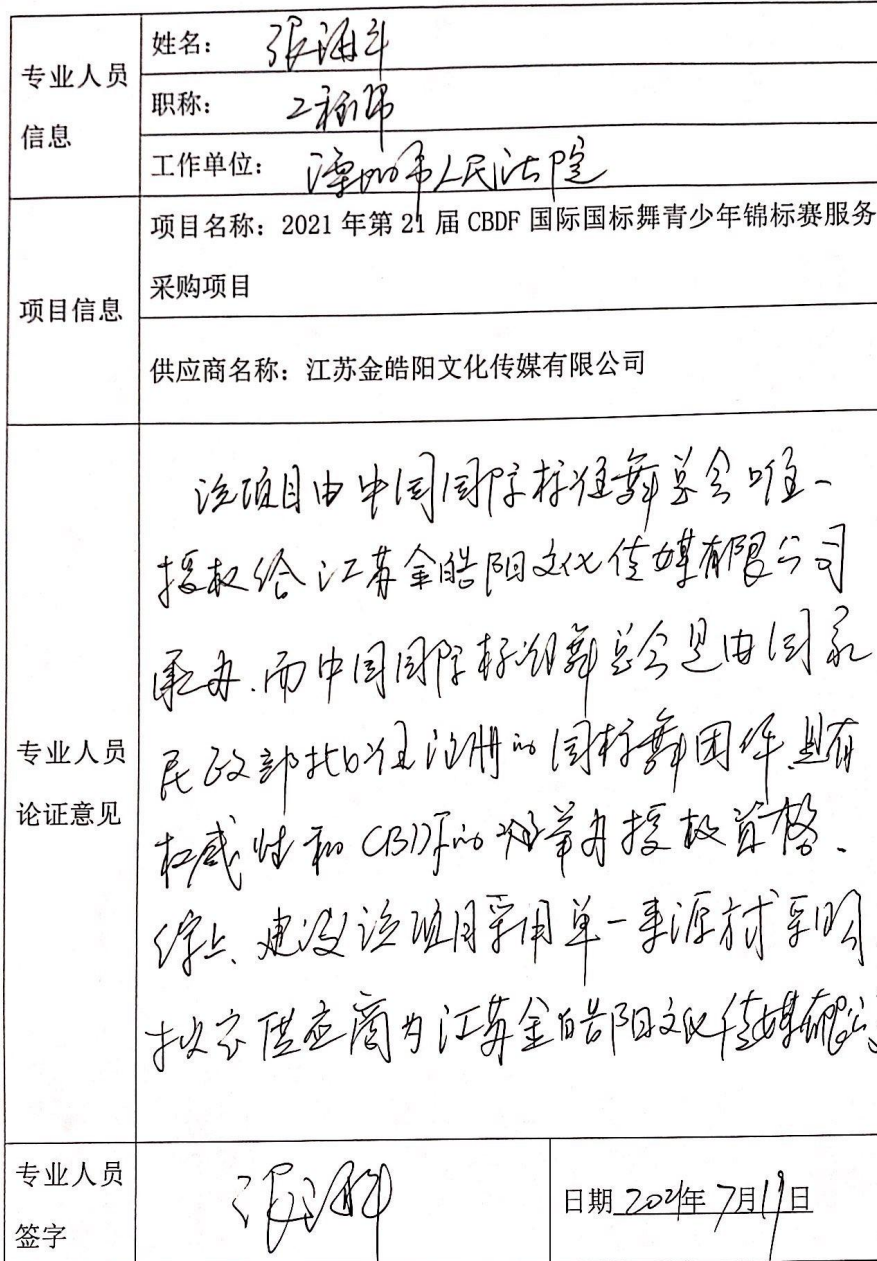 专业人员
信息
姓名：张海斗
职称：工程师
工作单位：漳州市人民法院
项目信息
项目名称：2021 年第 21 届 CBDF 国际国标舞青少年锦标赛服务
采购项目
供应商名称：江苏金皓阳文化传媒有限公司
专业人员
论证意见
该项目由中国国际标准舞总会唯一
授权给江苏金皓阳文化传媒有限公司
承办.而中国国际标准舞总会是由国家
民政部批准注册的国标舞团体.具有
权威性和CBDF的举办授权资格.
综上、建议该项目采用单一来源方式采购
拟定供应商为江苏金皓阳文化传媒有限公
专业人员
签字
日期 2021年 7月19日